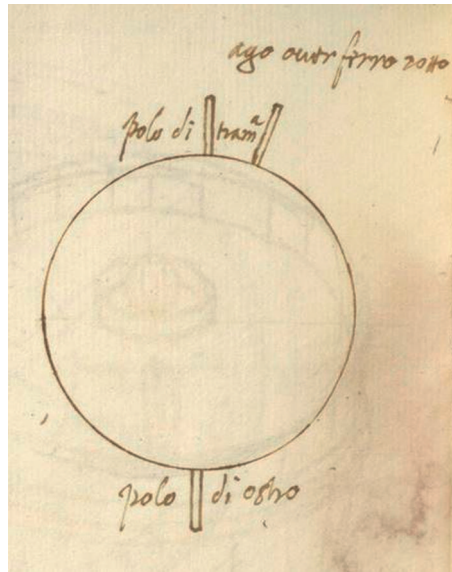 ago over ferro rotto
polo di tramª
polo di ostro